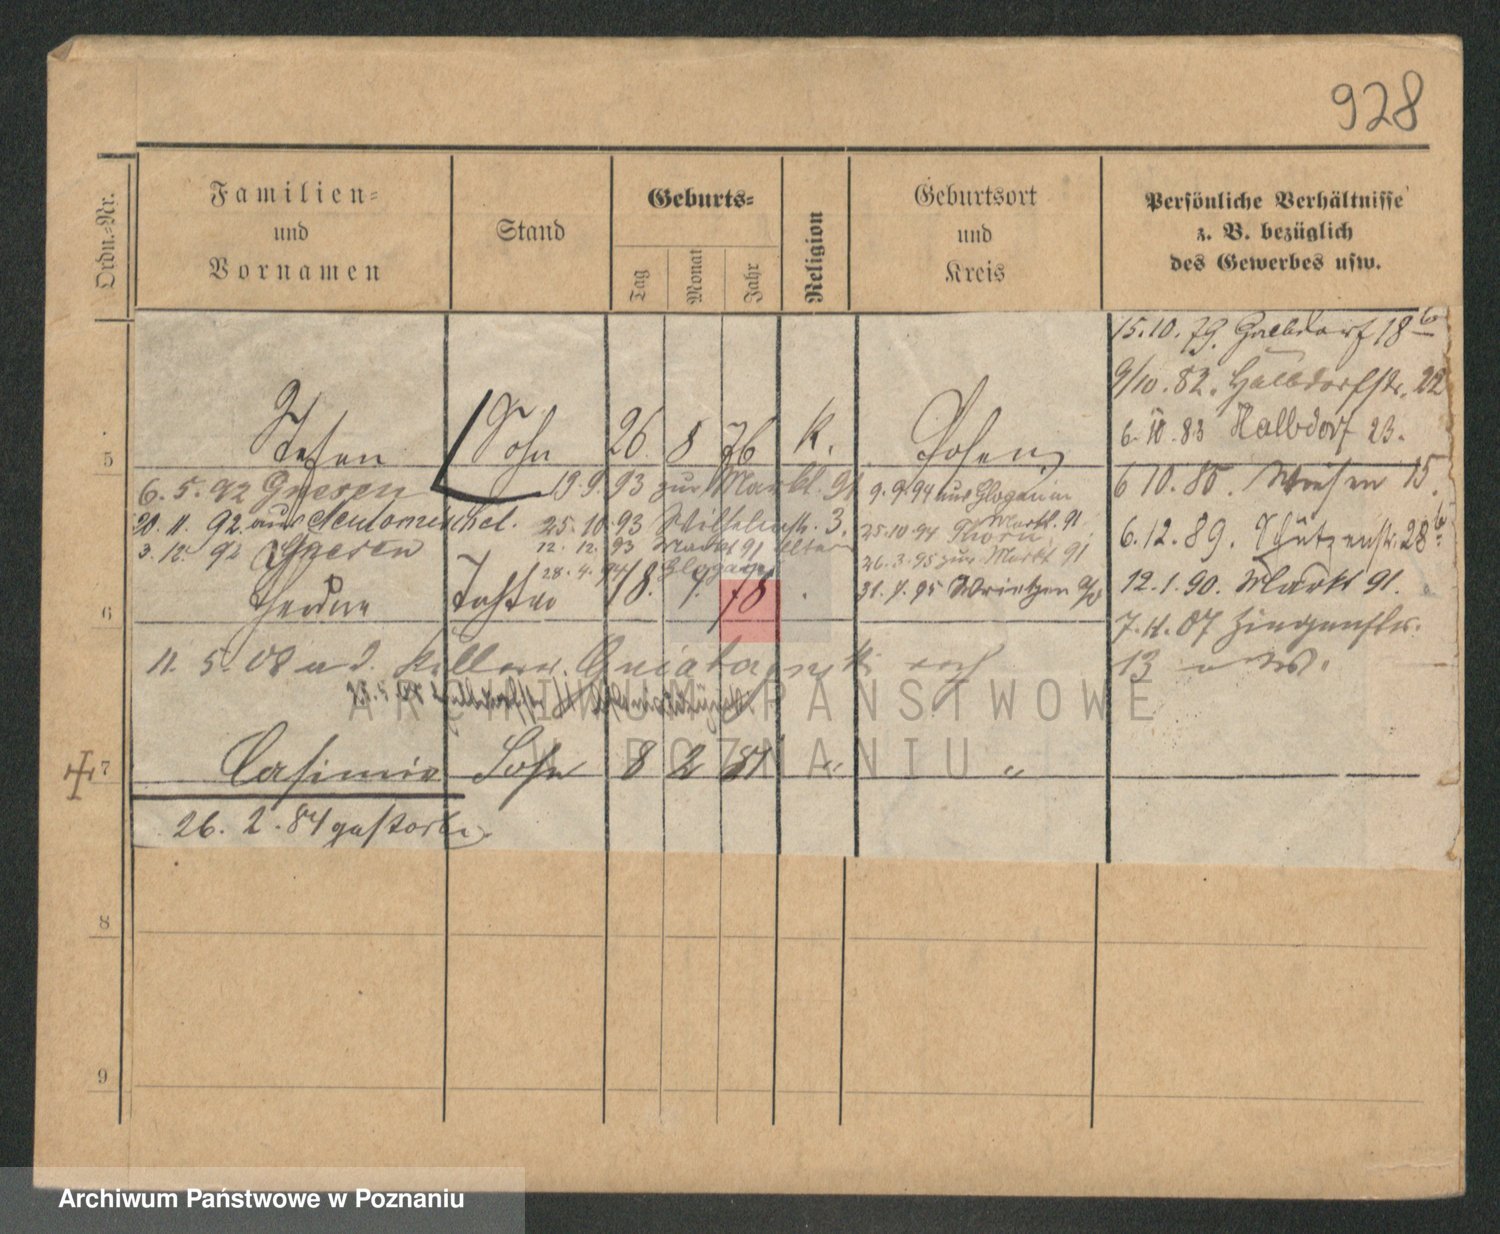 928
Ordn.-Nr.
Familien-
und
Vornamen
Stand
Geburts-
Tag
Monat
Jahr
Religion
Geburtsort
und
Kreis
Persönliche Verhältnisse
z. B. bezüglich
des Gewerbes usw.
15.10.79. Halbdorf 18 b
9/10.82. Halbdorfstr. 22
6.10.83 Halbdorf 23.
5 Stefan Sohn 26. 8 76 K. Posen
6.5.92 Gnesen 19.9.93 zur Markt. 91 9.9.94 aus Glogau in
Markt. 91
6 10.85. Wiesen 15.
20. 11. 92. aus Neutomischel. 25.10.93 Wilhelmstr. 3. 25.10.94 Thorn
6.12.89. Schützenstr. 28 b
3.12.92 Gnesen 12.12.93 Markt 91 Eltern 26.3.95 zur Markt 91
28.4.94 Glogau
31.7.95 Wrietzen a/O
12.1.90. Markt 91.
6 Tochter 18. 9. 78 .
7.4.07 Ziegenstr.
13
11. 5. 08
7 Casimir Sohn 8 2 81 " "
26. 2. 84 gestorben.
8
9
ARCHIWUM PAŃSTWOWE
W POZNANIU
Archiwum Państwowe w Poznaniu